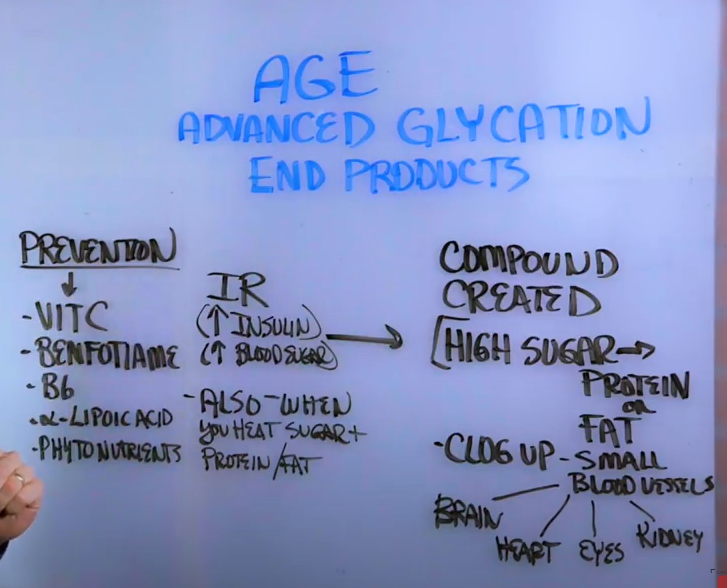 AGE
ADVANCED GLYCATION
END PRODUCTS
PREVENTION
↓
-VIT C
-BENFOTIAME
-B6
-α-LIPOIC ACID
-PHYTONUTRIENTS
IR
(↑ INSULIN)
(↑ BLOOD SUGAR)
→
-ALSO-WHEN
YOU HEAT SUGAR +
PROTEIN/FAT
COMPOUND
CREATED
[HIGH SUGAR→
PROTEIN
OR
FAT
-CLOG UP-SMALL
BLOOD VESSELS
BRAIN
HEART EYES KIDNEY